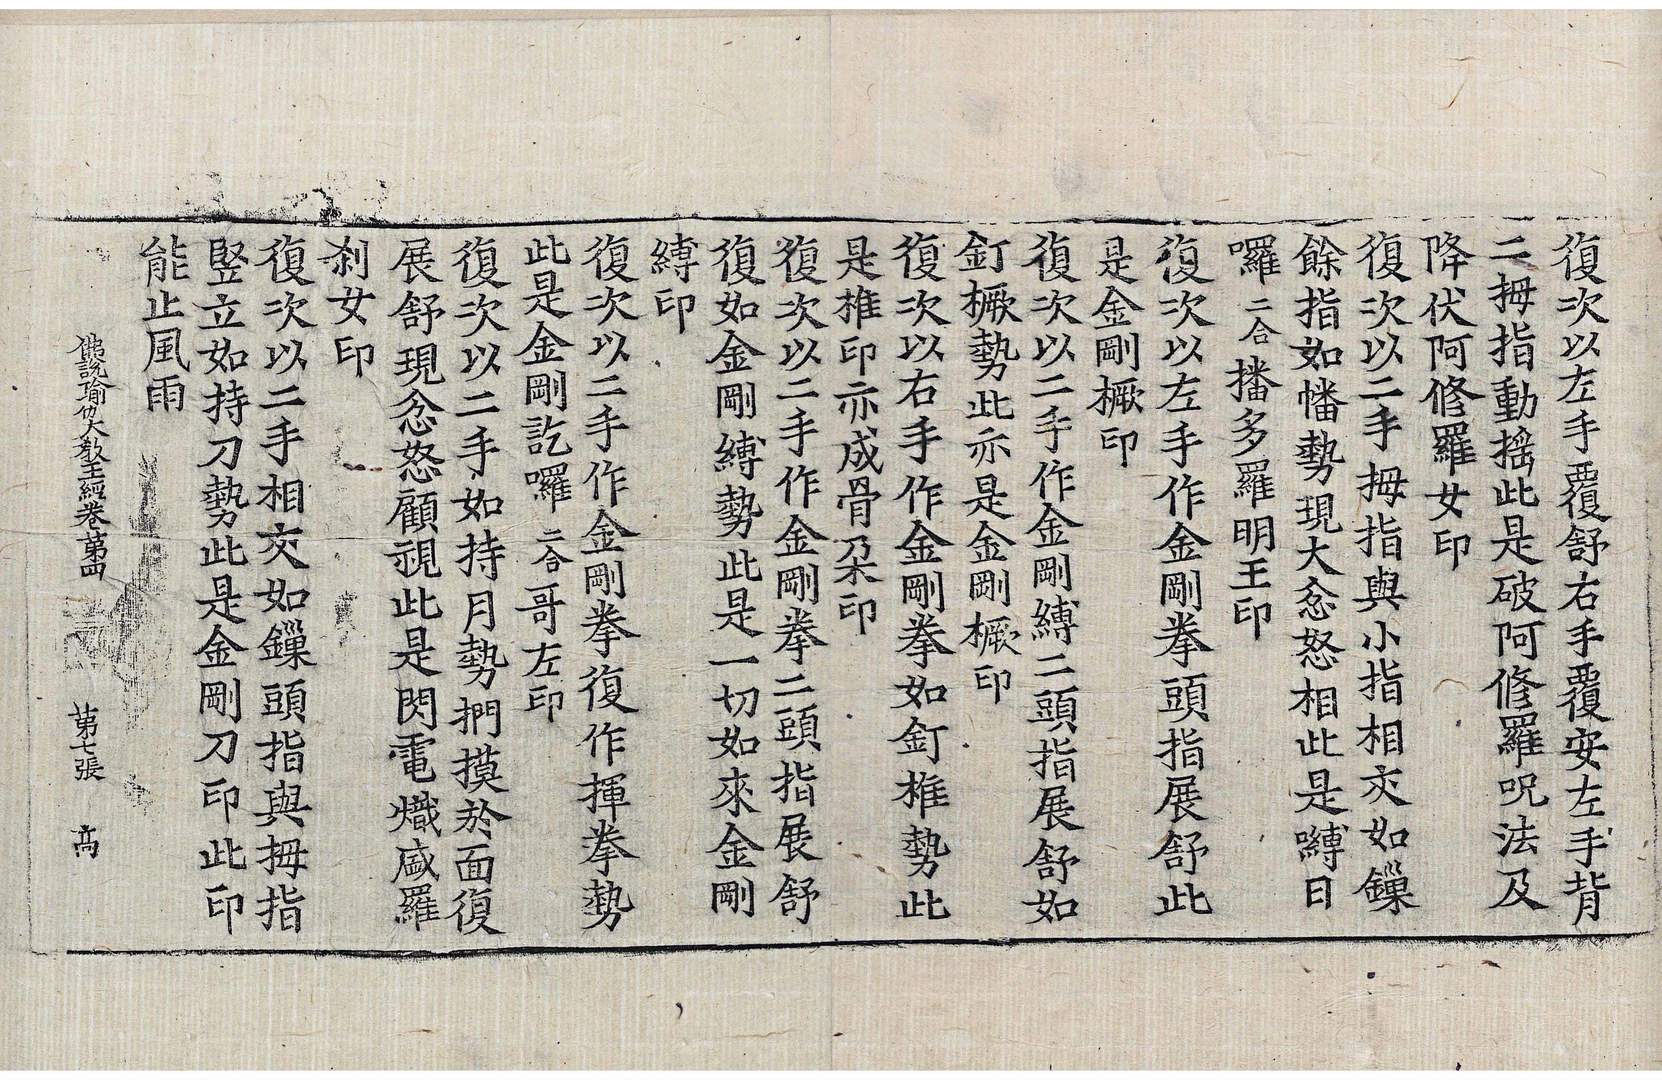 復次以左手覆舒右手覆安左手背
二拇指動搖此是破阿修羅呪法及
降伏阿修羅女印
復次以二手拇指與小指相交如鏁
餘指如幡勢現大忿怒相此是嚩日
囉二合播多羅明王印
復次以左手作金剛拳頭指展舒此
是金剛橛印
復次以二手作金剛縛二頭指展舒如
釘橛勢此亦是金剛橛印
復次以右手作金剛拳如釘椎勢此
是椎印亦成骨朶印
復次以二手作金剛拳二頭指展舒
復如金剛縛勢此是一切如來金剛
縛印
復次以二手作金剛拳復作揮拳勢
此是金剛訖囉二合哥左印
復次以二手如持月勢捫摸於面復
展舒現忿怒顧視此是閃電熾盛羅
刹女印
復次以二手相交如鏁頭指與拇指
竪立如持刀勢此是金剛刀印此印
能止風雨
佛說瑜伽大教王經卷苐四 苐七張 髙